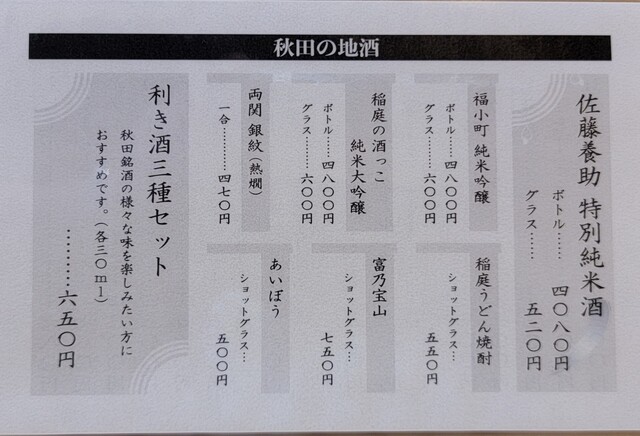 秋田の地酒
佐藤養助 特別純米酒
ボトル……四〇八〇円
グラス……五二〇円
福小町 純米吟醸
ボトル……四八〇〇円
グラス……六〇〇円
稲庭の酒っこ
純米大吟醸
ボトル……四八〇〇円
グラス……六〇〇円
両関 銀紋(熱燗)
一合…………四七〇円
稲庭うどん焼酎
ショットグラス…
五五〇円
富乃宝山
ショットグラス…
七五〇円
あいぼう
ショットグラス…
五〇〇円
利き酒三種セット
秋田銘酒の様々な味を楽しみたい方に
おすすめです。(各三〇ml)
………六五〇円